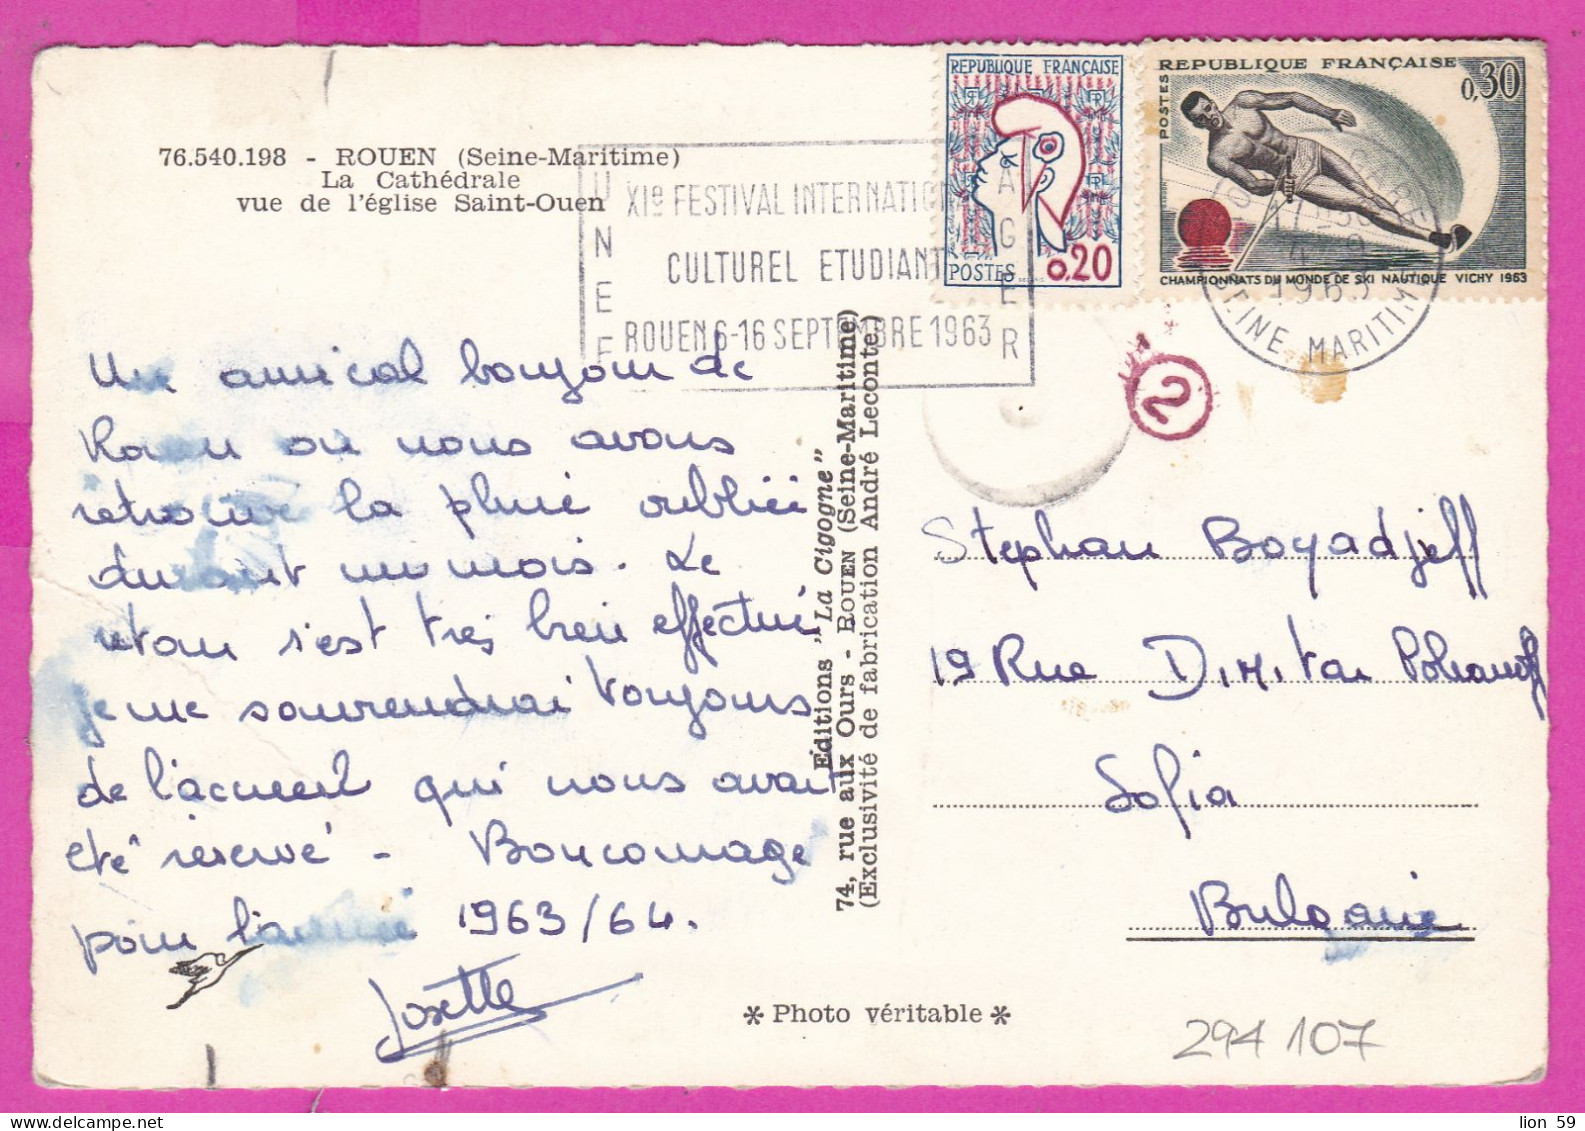 76.540.198 - ROUEN (Seine-Maritime)
La Cathédrale
vue de l'église Saint-Ouen
XIe FESTIVAL INTERNATIO
CULTUREL ETUDIANT
ROUEN 6-16 SEPTEMBRE 1963
REPUBLIQUE FRANÇAISE
POSTES
0,20
REPUBLIQUE FRANÇAISE
POSTES
0,30
CHAMPIONNATS DU MONDE DE SKI NAUTIQUE VICHY 1963
1963
SEINE MARITIME
2
Un amical bonjour de
Rouen où nous avons
retrouvé la pluie oubliée
durant un mois. Le
retour s'est très bien effectué
je me souviendrai toujours
de l'accueil qui nous avait
été réservé -
pour l'année 1963/64.
Josette
Editions "La Cigogne"
74, rue aux Ours - ROUEN (Seine-Maritime)
(Exclusivité de fabrication André Leconte.)
Stephan Boyadjeff
19 Rue Dimitar Polianoff
Sofia
Bulgarie
* Photo véritable *
294 107
lion 59